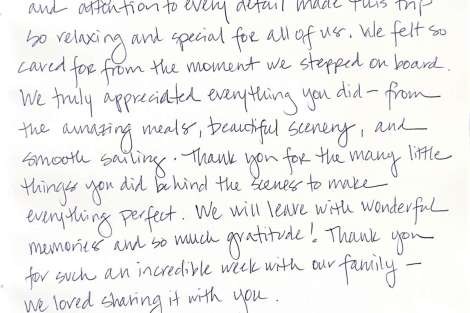 and attention to every detail made this trip
so relaxing and special for all of us. We felt so
cared for from the moment we stepped on board.
We truly appreciated everything you did - from
the amazing meals, beautiful scenery, and
smooth sailing. Thank you for the many little
things you did behind the scenes to make
everything perfect. We will leave with wonderful
memories and so much gratitude! Thank you
for such an incredible week with our family -
we loved sharing it with you.